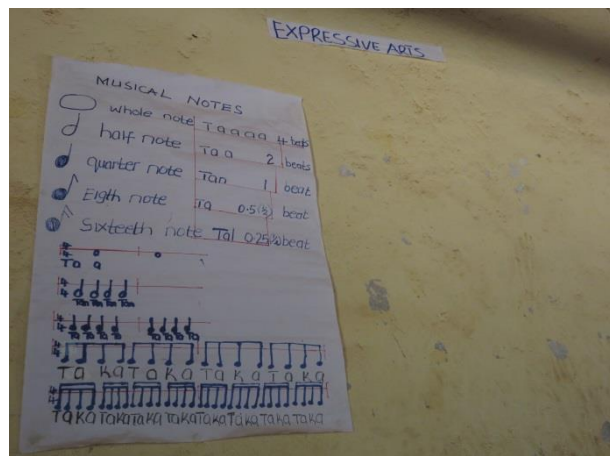 EXPRESSIVE ARTS
MUSICAL NOTES
whole note Taaaa 4 beats
half note Taa 2 beats
quarter note Tan 1 beat
Eigth note Ta 0.5(½) beat
Sixteeth note Tal 0.25(¼) beat
Ta a
Tan Tan Tan Tan
Ta Ta Ta Ta Ta Ta Ta Ta
Ta ka Ta ka Ta ka Ta ka
TakaTakaTakaTakaTakaTakaTakaTaka